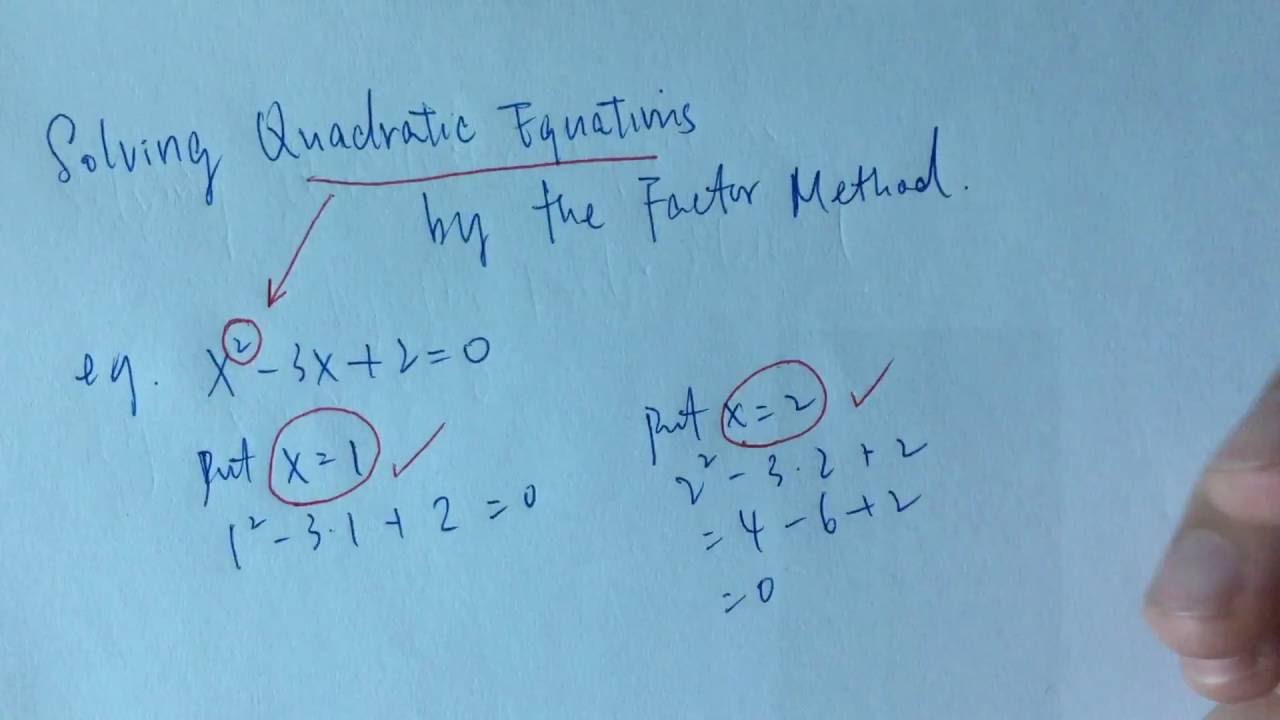 Solving Quadratic Equations
by the Factor Method.
eg. x² - 3x + 2 = 0
put x = 1 ✓
1² - 3·1 + 2 = 0
put x = 2 ✓
2² - 3·2 + 2
= 4 - 6 + 2
= 0